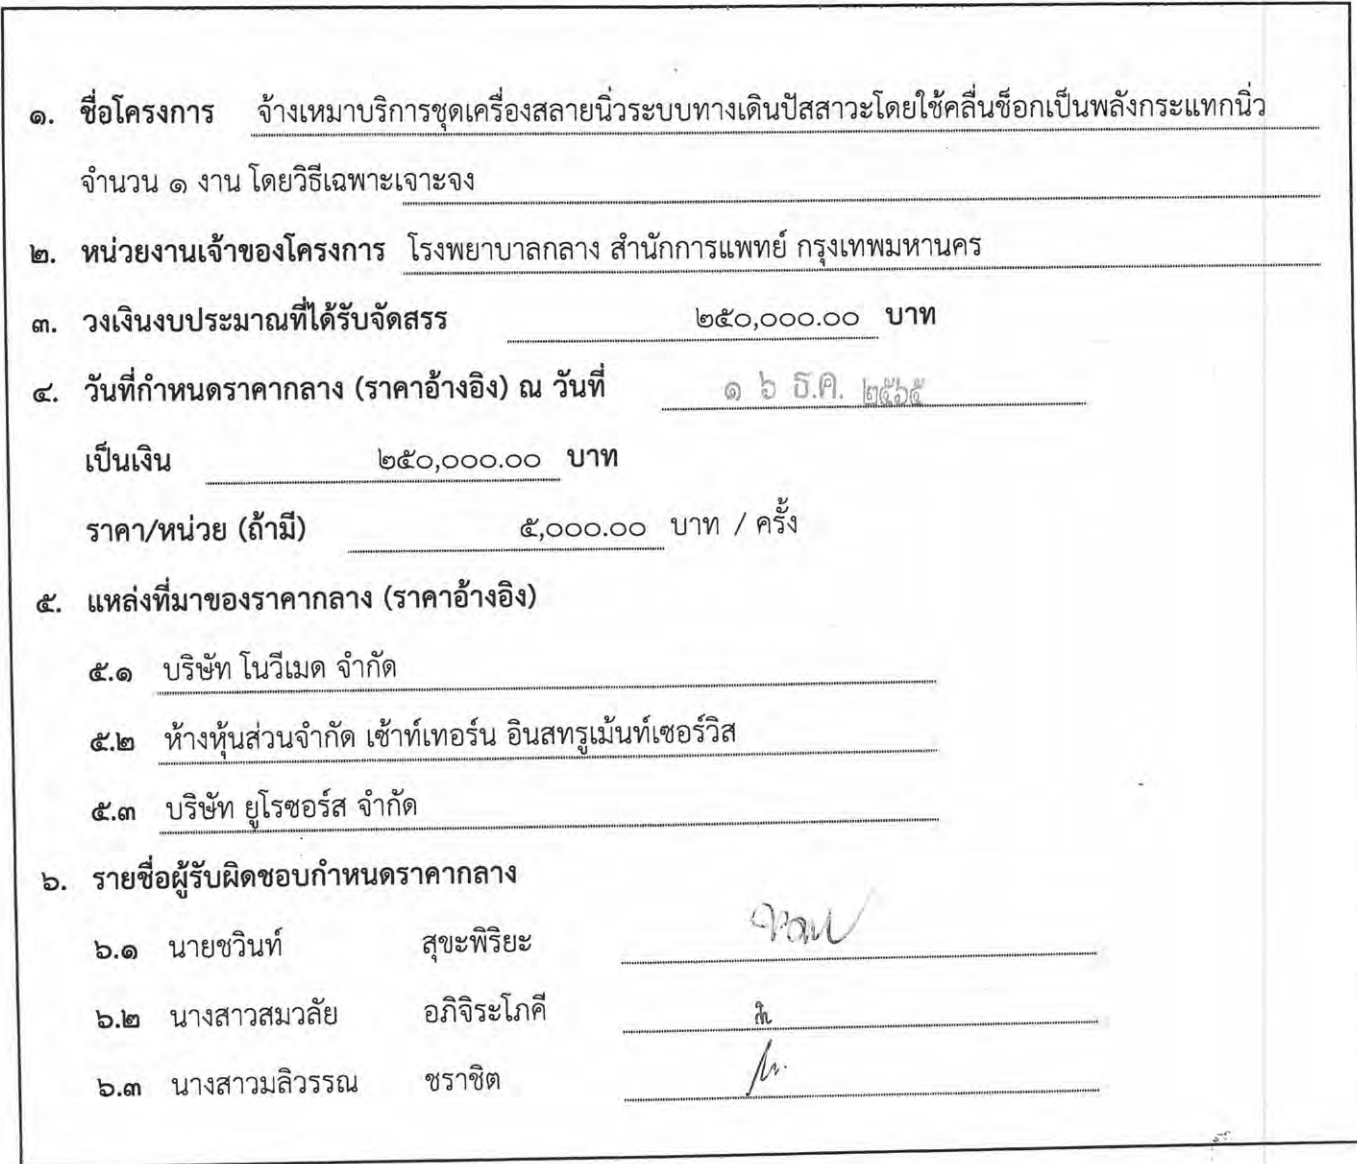 ๑. ชื่อโครงการ จ้างเหมาบริการชุดเครื่องสลายนิ่วระบบทางเดินปัสสาวะโดยใช้คลื่นช็อกเป็นพลังกระแทกนิ่ว
จำนวน ๑ งาน โดยวิธีเฉพาะเจาะจง
๒. หน่วยงานเจ้าของโครงการ โรงพยาบาลกลาง สำนักการแพทย์ กรุงเทพมหานคร
๓. วงเงินงบประมาณที่ได้รับจัดสรร ๒๕๐,๐๐๐.๐๐ บาท
๔. วันที่กำหนดราคากลาง (ราคาอ้างอิง) ณ วันที่ ๑ ๖ ธ.ค. ๒๕๖๕
เป็นเงิน ๒๕๐,๐๐๐.๐๐ บาท
ราคา/หน่วย (ถ้ามี) ๕,๐๐๐.๐๐ บาท / ครั้ง
๕. แหล่งที่มาของราคากลาง (ราคาอ้างอิง)
๕.๑ บริษัท โนวีเมด จำกัด
๕.๒ ห้างหุ้นส่วนจำกัด เซ้าท์เทอร์น อินสทรูเม้นท์เซอร์วิส
๕.๓ บริษัท ยูโรซอร์ส จำกัด
๖. รายชื่อผู้รับผิดชอบกำหนดราคากลาง
๖.๑ นายชวินท์ สุขะพิริยะ
๖.๒ นางสาวสมวลัย อภิจิระโภคี
๖.๓ นางสาวมลิวรรณ ชราชิต